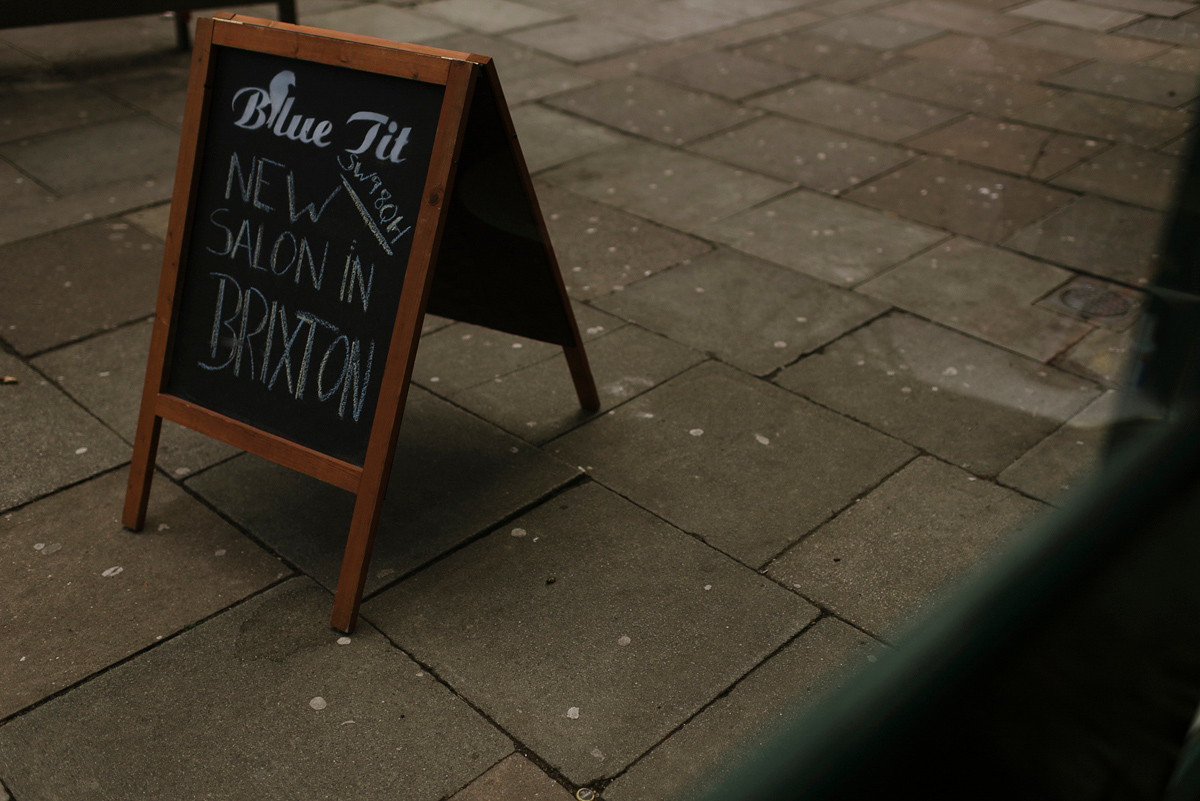 Blue Tit
SW9 8QH
NEW
SALON iN
BRIXTON